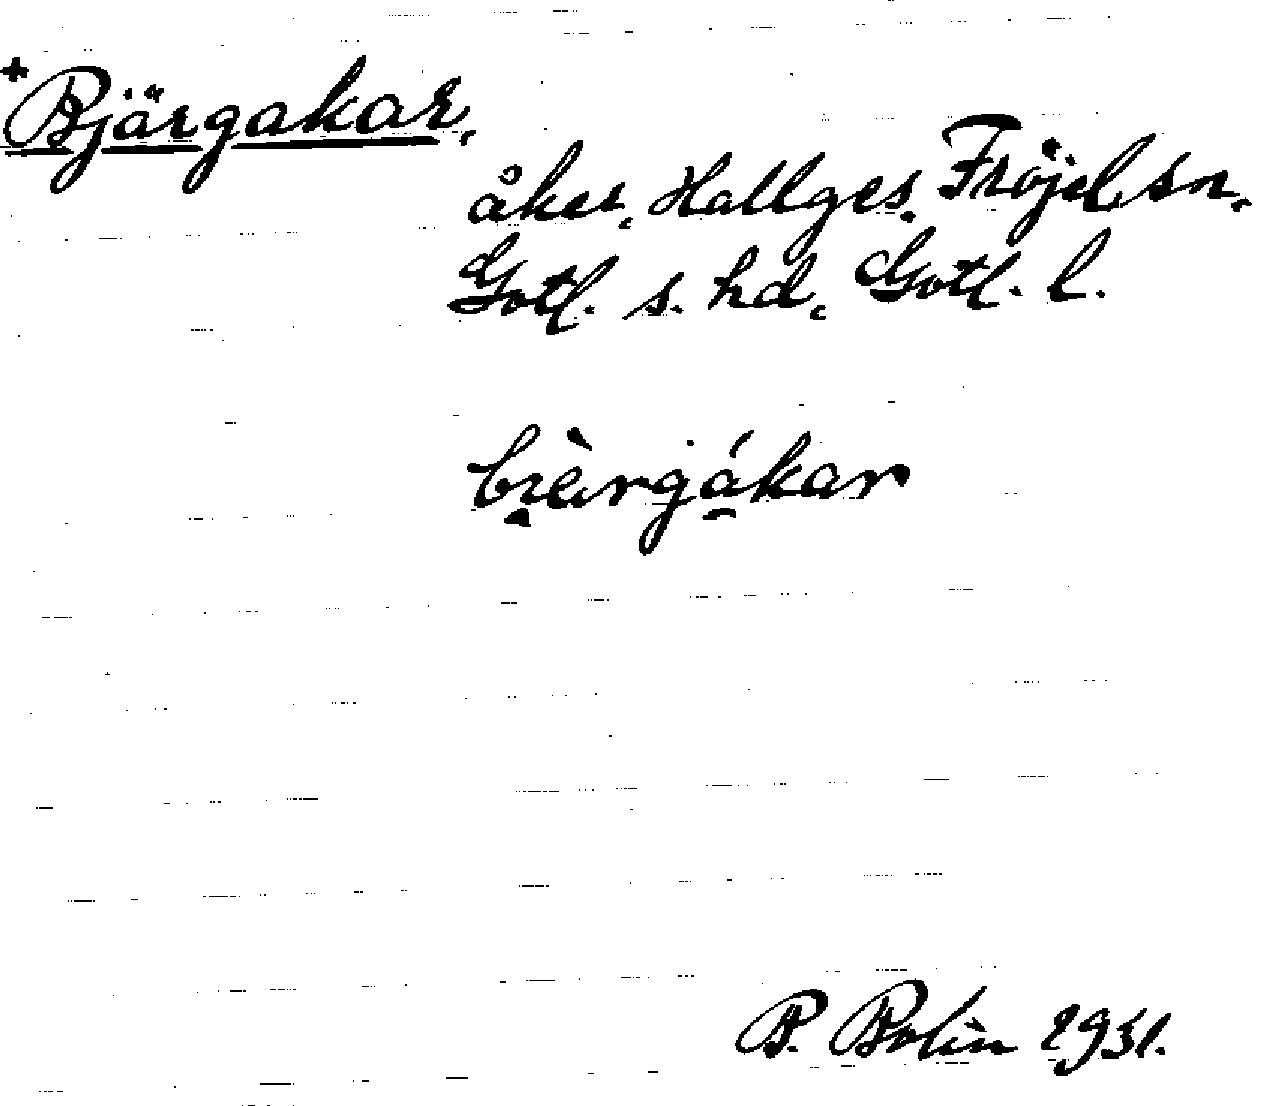 +Bjärgakar,
åker, Hallges, Fröjel sn,
Gotl. s. hd, Gotl. l.
biärgákar
P. Bolin 1931.